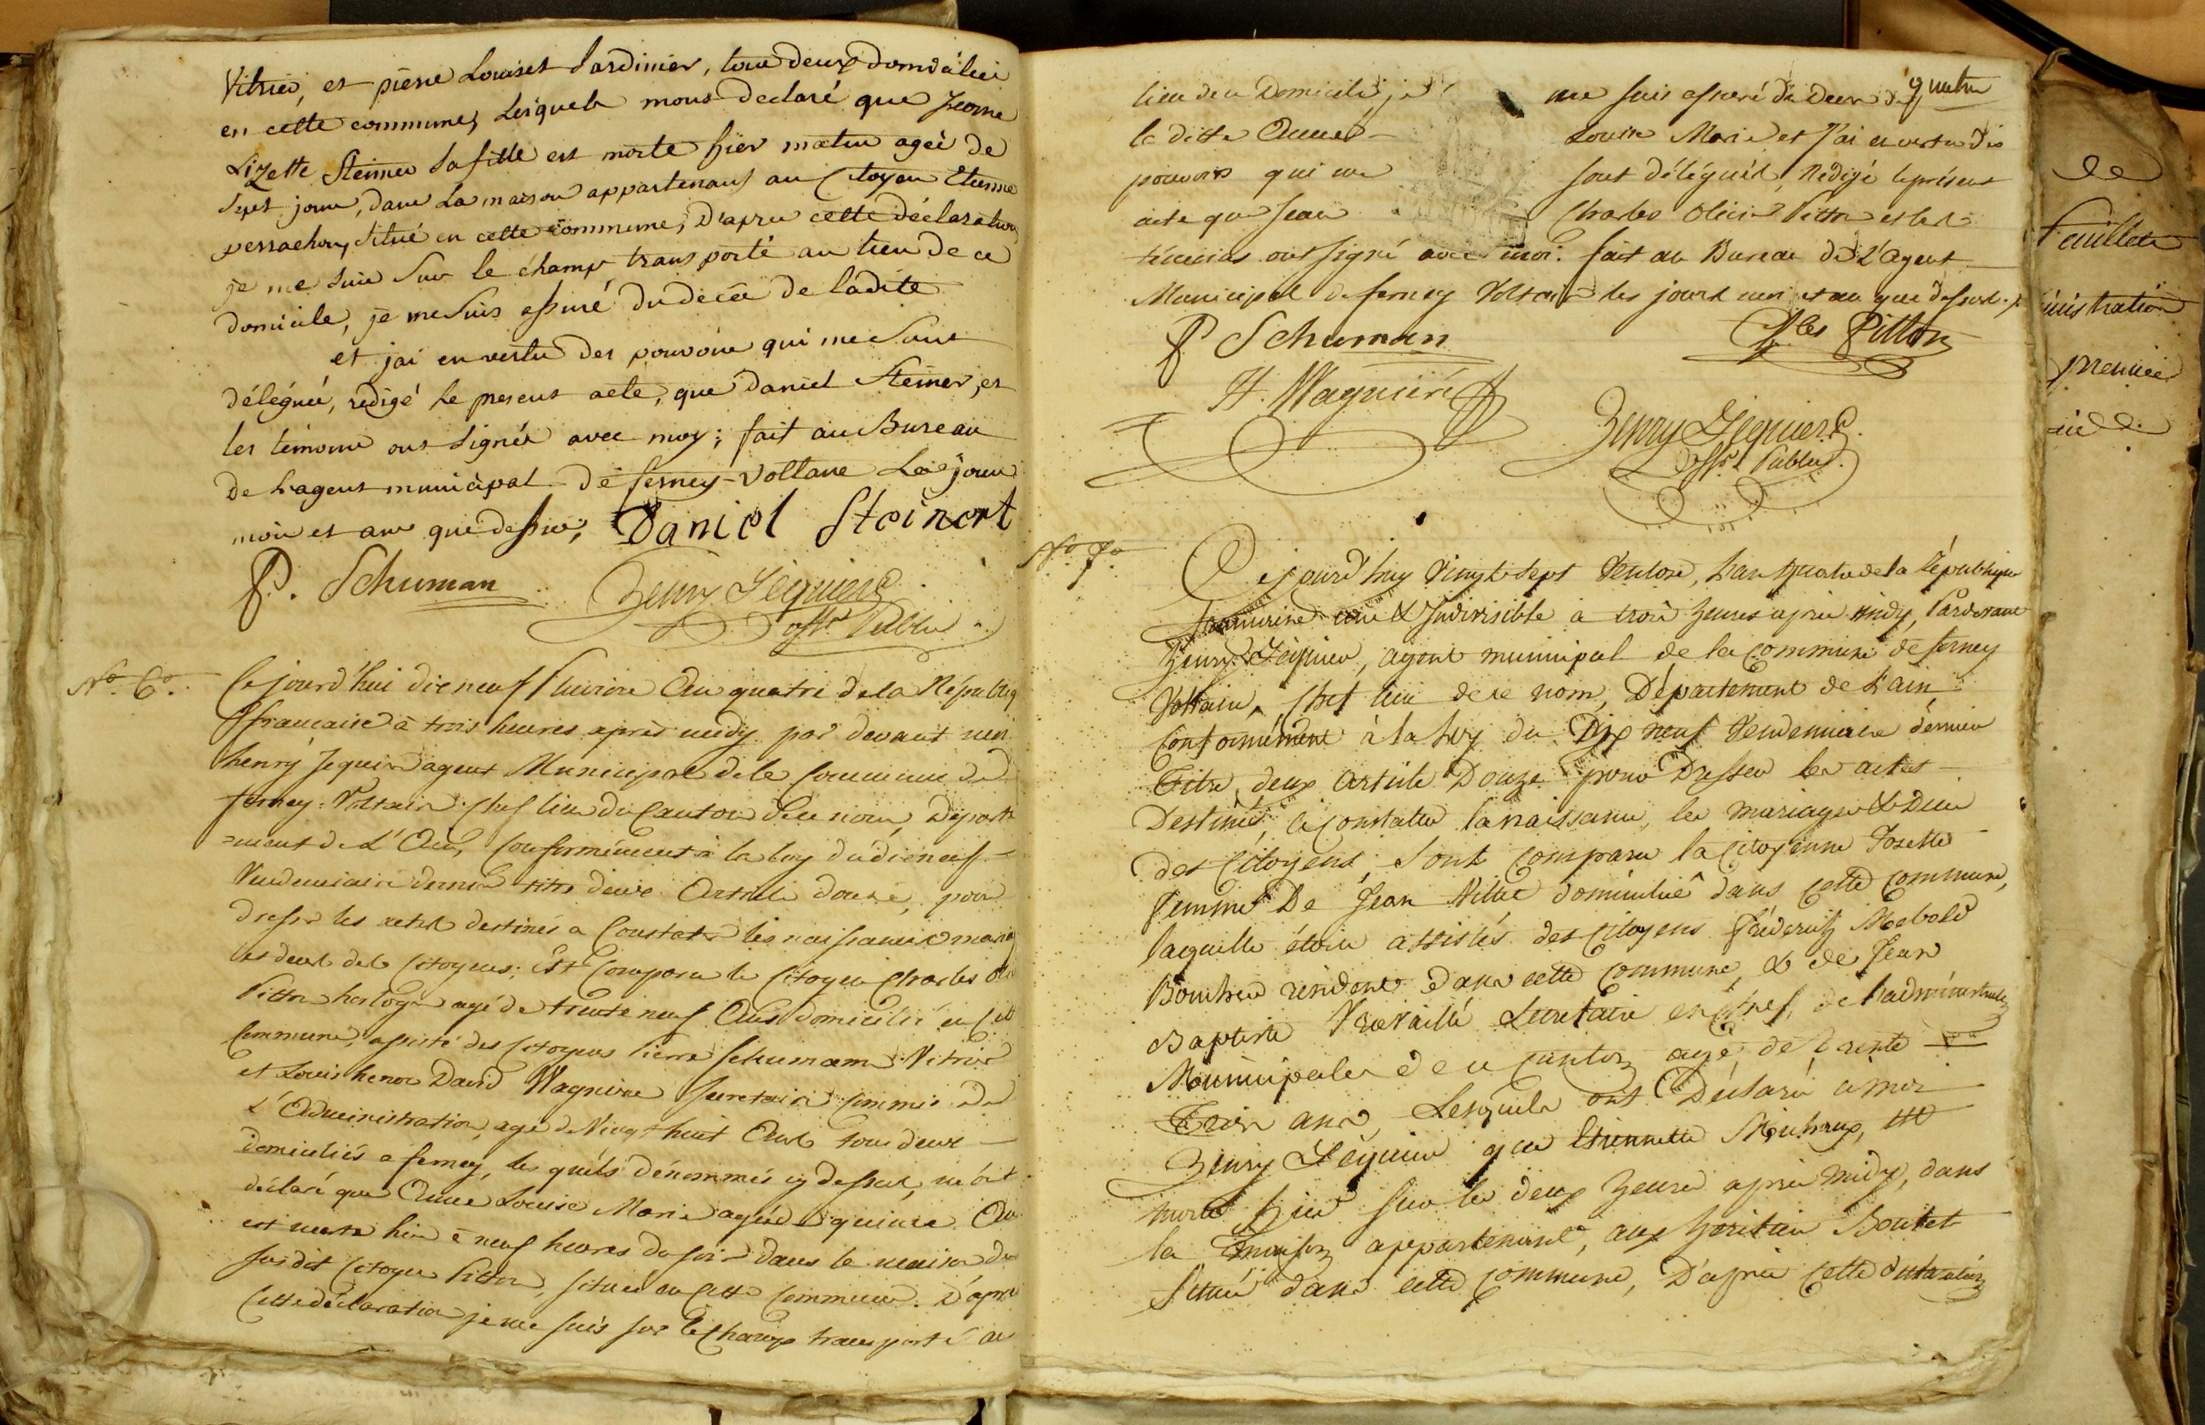 Vitrier, et pierre Louiset Jardinier, tous deux domiciliés
en cette commune, Lesquels mons declaré que Jeanne
Lizette Steiner sa fille est morte hier matin ageé de
Sept jours, dans La maison appartenans au Citoyen Etienne
perrachon, situé en cette commune, D'apres cette déclaration
je me suis sur le champ transporté au lieu de ce
domicile, je me suis assuré du decée de ladite
et jai en vertu des pouvoirs qui me sont
délégués, redigé le present acte, que daniel Steiner, et
les témoins ont signés avec moy; fait au Bureau
De Lagent municipal de ferney-voltaire Les jour
mois et an que dessus,
Daniel Steinert
P. Schuman
Henry Jequier
offr. Public
No. 6o.
Cejourd'hui dix neuf Pluviose An quatre de la Républiq
francaise à trois heures après midy par devant moi
henry Jequier agent Municipal de la Commune de
ferney-Voltaire Chef lieu du Canton de ce nom, Départe
=ment de L'Ain, Conformément à la loy du dix neuf
Vendemiaire dernier titre deux Article douze, pour
dresser les actes destinés a Constater les naissances maria
et deces des Citoyens; Est Comparu le Citoyen Charles
Pitton horloger agé de trente neuf Ans domicilié en Cette
Commune, assisté des Citoyens Pierre Schumam Vitrier
et Louis henri David Wagniere Secretaire Commis de
L'Administration, agé de Vingt huit Ans tous deux
domiciliés a ferney, les quels dénommés cy dessus, m'ont
déclaré que Anne Louise Marie agée de quinze
est morte hier à neuf heures du soir dans la maison du
susdit Citoyen Pitton, située en Cette Commune. D'après
Cette déclaration je me suis sur le Champ transporté au
quatre
lieu de ce Domicile, je me suis assuré du Deces de
la ditte Anne Louise Marie et J'ai en vertu des
pouvoirs qui me sont délégués, Rédigé le présent
acte que Jean Charles Pitton et les
témoins ont signé avec moi. fait au Bureau de L'agent
Municipal de ferney Voltaire les jours mois et an que dessus.
P Schuman
Chles Pitton
H. Wagniere
Henry Jequier
offr. Public
No. 7o
Cejourd'huy Vingt-sept Ventose, L'an quatre de la République
francaise une & Indivisible a trois heures après midy, Pardevant
Henry Jequier, agent municipal de la Commune de ferney
Voltaire, Chef lieu de ce nom, Département de L'ain
Conformément à la Loy du Dix neuf Vendemiaire dernier
Titre deux Article Douze pour Dresser les actes
Destinés, à Constater la naissance, les mariages & Deces
des Citoyens, Sont Comparu la Citoyenne Josette
femme De Jean domicilié dans cette Commune,
laquelle étoit assistés des Citoyens fréderich
résident dans cette Commune, & de Jean
Baptiste Secretaire en Chef, de Ladministration
Municipale de ce Canton agé de Trente
Trois ans, Lesquels ont Déclaré à moi
Henry Jequier que Etiennette
morte hier sur les deux heures après midy, dans
la maison appartenant, aux heritiers
Situé dans cette Commune, D'après Cette déclaration
de
feuillets
ministration
premier